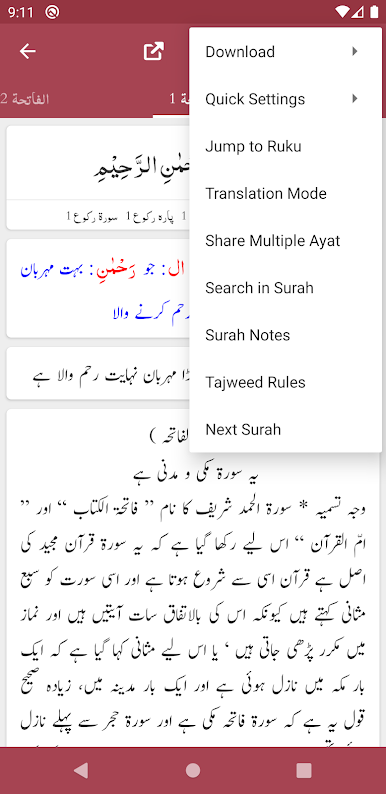 9:11
الفاتحة 2
1
Download
Quick Settings
Jump to Ruku
Translation Mode
Share Multiple Ayat
Search in Surah
Surah Notes
Tajweed Rules
Next Surah
الرَّحِيْمِ
1 پارہ رکوع 1 سورۃ رکوع 1
ال : جو رَحْمٰنِ : بہت مہربان
رحم کرنے والا
مہربان نہایت رحم والا ہے
الفاتحہ )
یہ سورۃ مکی و مدنی ہے
وجہ تسمیہ * سورۃ الحمد شریف کا نام ” فاتحۃ الکتاب “ اور ”
امّ القرآن “ اس لیے رکھا گیا ہے کہ یہ سورۃ قرآن مجید کی
اصل ہے قرآن اسی سے شروع ہوتا ہے اور اسی سورت کو سبع
مثانی کہتے ہیں کیونکہ اس کی بالاتفاق سات آیتیں ہیں اور نماز
میں مکرر پڑھی جاتی ہیں ، یا اس لیے مثانی کہا گیا ہے کہ ایک
بار مکہ میں نازل ہوئی ہے اور ایک بار مدینہ میں، زیادہ صحیح
قول یہ ہے کہ سورۃ فاتحہ مکی ہے اور سورۃ حجر سے پہلے نازل